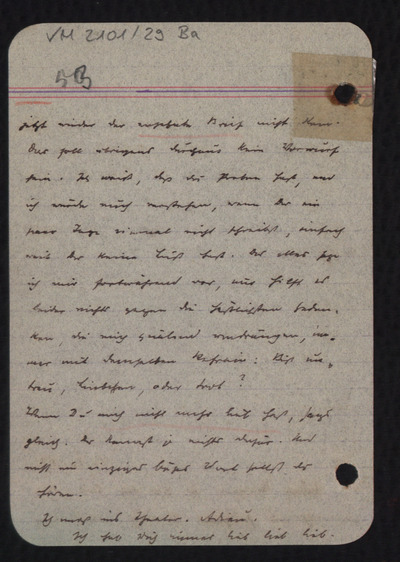 VM 2101/29 Ba
5B
jetzt wieder der ersehnte Brief nicht kam.
Das soll übrigens durchaus kein Vorwurf
sein. Ich weiß, daß du Proben hast, und
ich würde auch verstehen, wenn Du ein
paar Tage einmal nicht schreibst, einfach
weil Du keine Lust hast. Das alles sage
ich mir fortwährend vor, nur hilft es
leider nichts gegen die Gedan-
ken, die mich quälend umdrängen, im-
mer mit demselben Refrain: Bist un-
treu, Liebchen, oder tot?
Wenn Du mich nicht mehr lieb hast, sag's
gleich. Du kannst ja nichts dafür. Und
nicht ein einziges böses Wort sollst du
hören.
Ich muß ins Theater. Adieu.
Ich hab Dich einmal lieb lieb lieb.